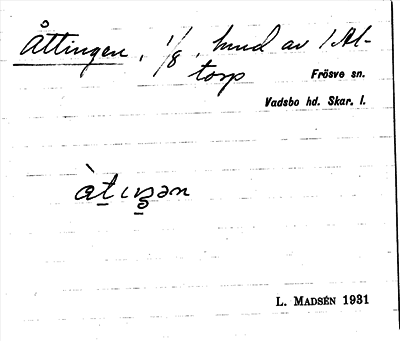 Åttingen, 1/8, hmd av 1 Al-
torp
Frösve sn.
Vadsbo hd. Skar. l.
L. MADSÉN 1931